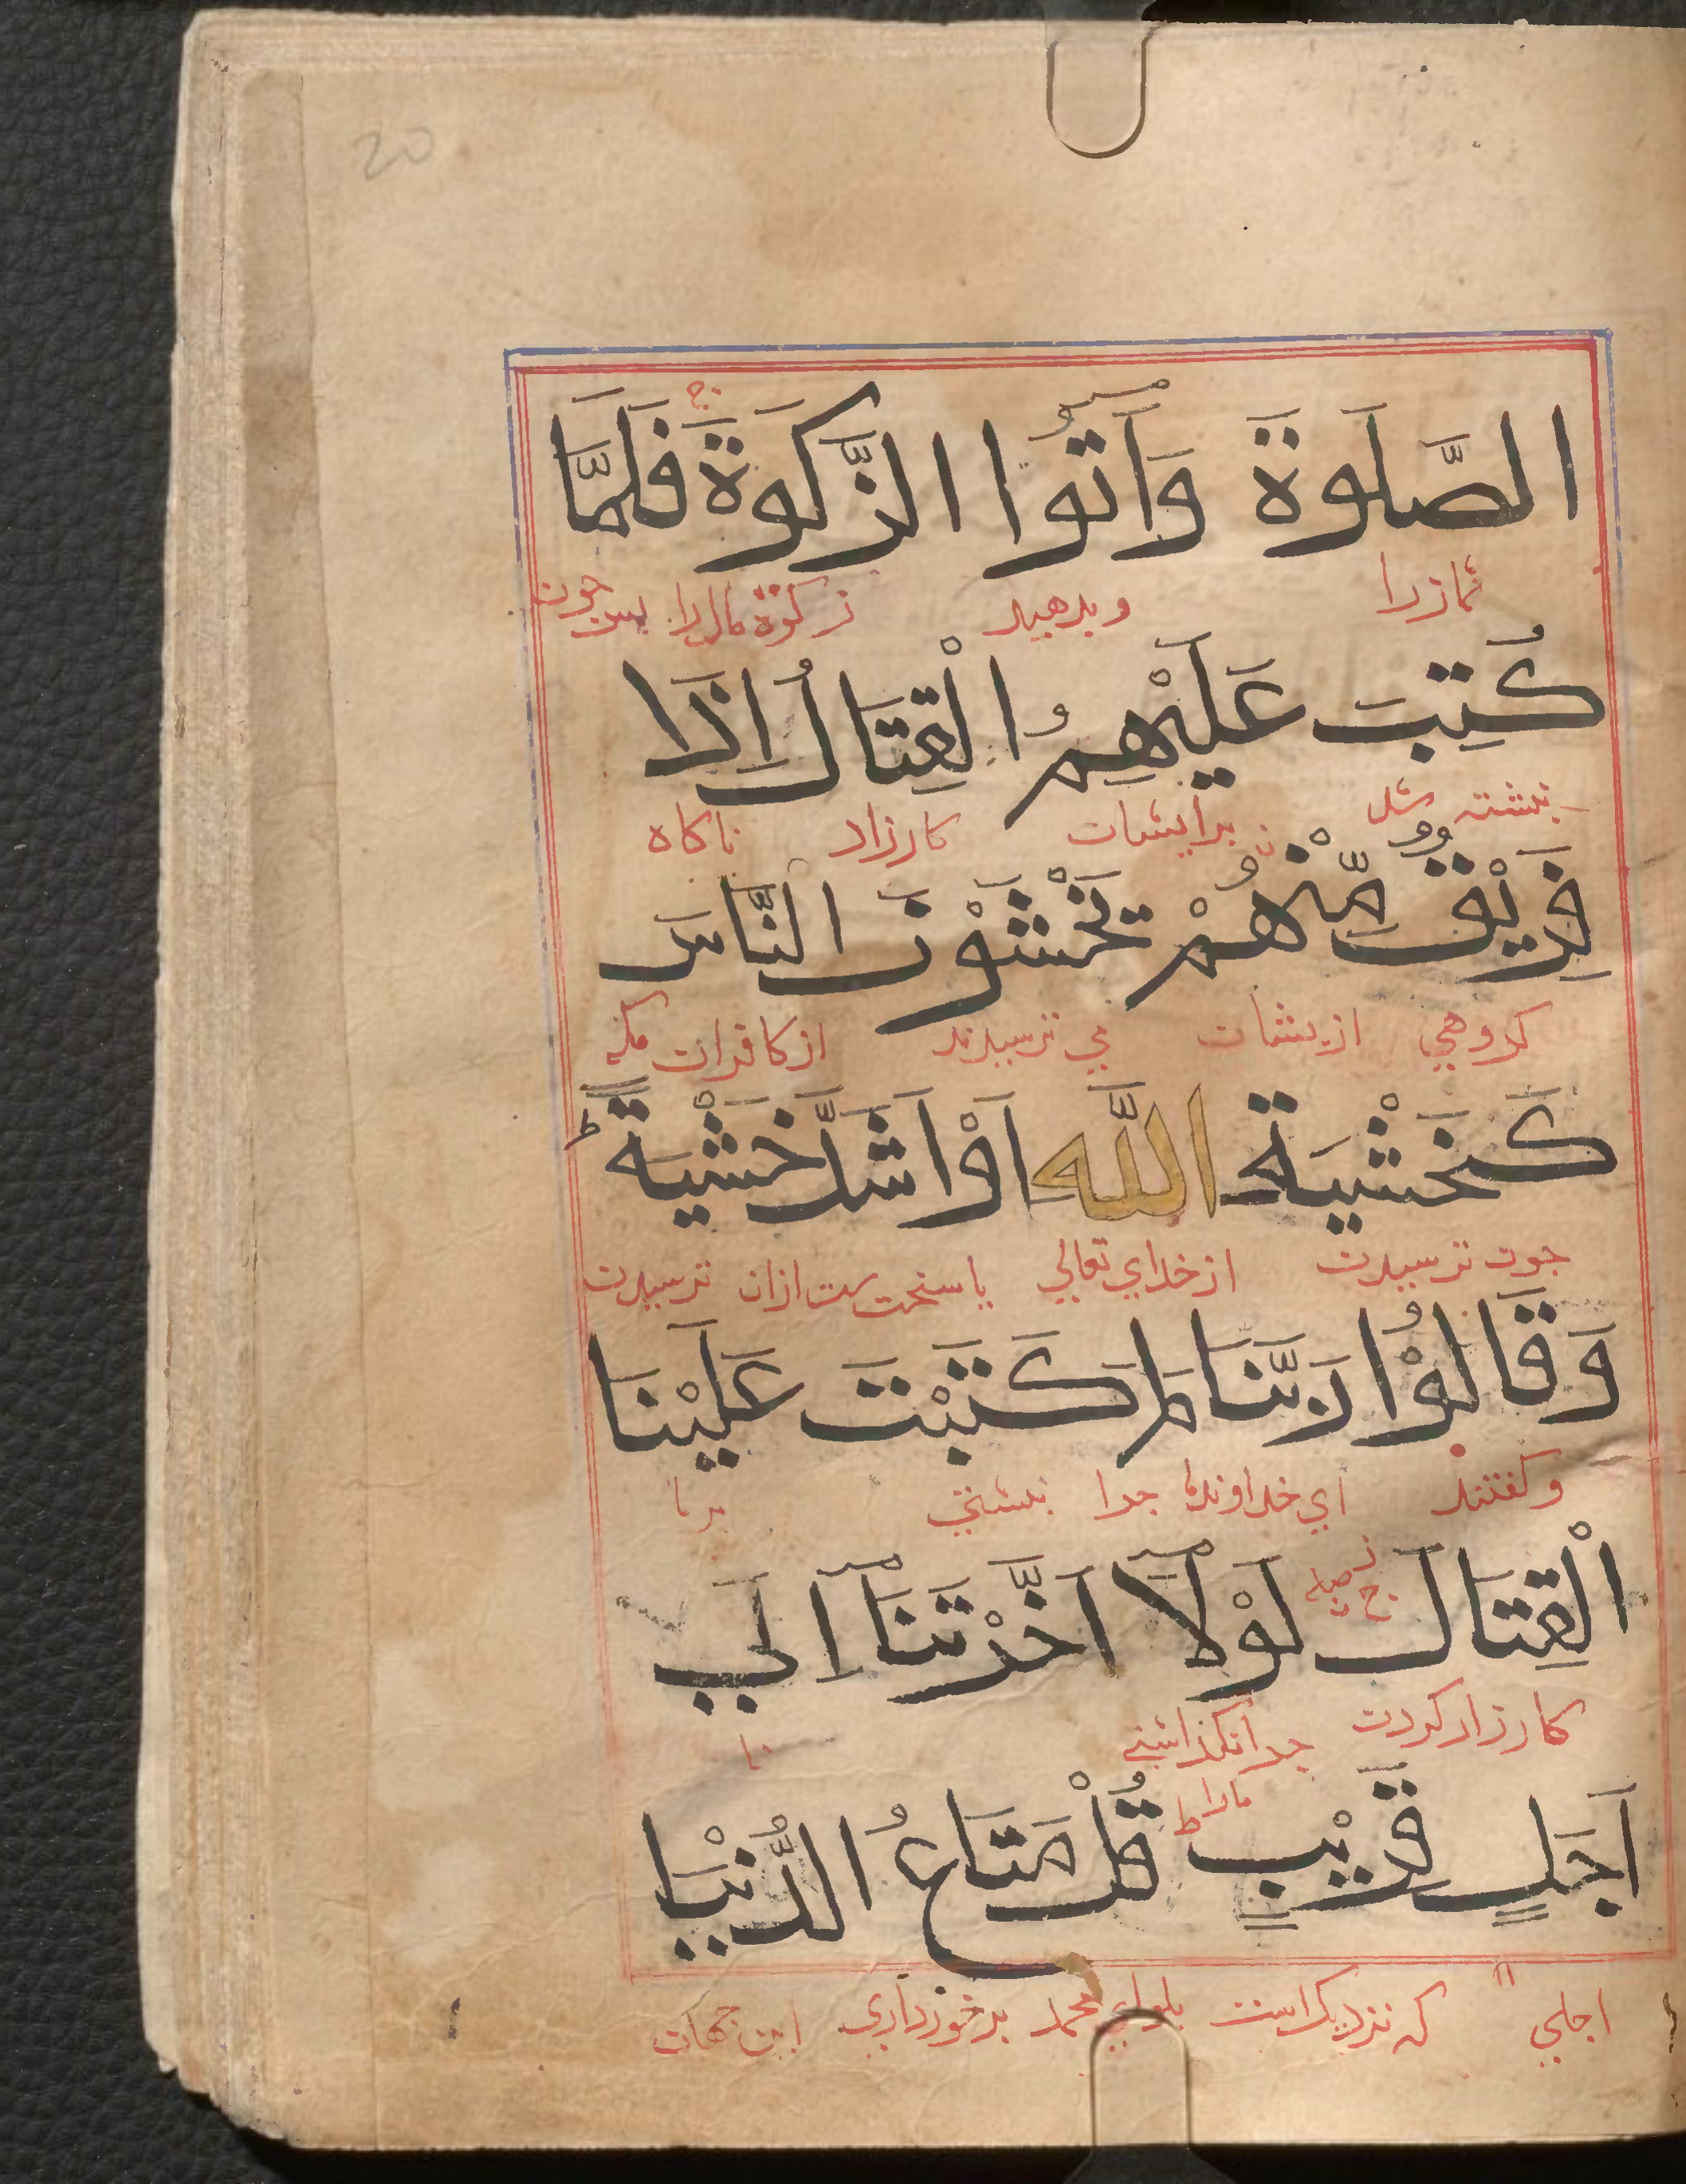 20
الصَّلَوةَ وَاٰتُوا الزَّكَوةَ فَلَمَّا
نماز را وبدهید زکوة مال را پس چون
كُتِبَ عَلَيْهِمُ الْقِتَالُ اِذَا
نبشته شد بر ایشان کارزار ناکاه
فَرِيْقٌ مِّنْهُمْ يَخْشَوْنَ النَّاسَ
کروهی ازیشان می ترسیدند از کافران مکه
كَخَشْيَةِ اللَّهِ اَوْ اَشَدَّ خَشْيَةً
چون ترسیدن از خدای تعالی یا سخت از ان ترسیدن
وَقَالُوْا رَبَّنَا لِمَ كَتَبْتَ عَلَيْنَا
وکفتند ای خداوند ما چرا نبشتی بر ما
الْقِتَالَ لَوْلَآ اَخَّرْتَنَآ اِلَى
کارزار کردن چرا نکذاشتی ما را تا
اَجَلٍ قَرِيْبٍ قُلْ مَتَاعُ الدُّنْيَا
اجلی که نزدیک است بکو ای محمد برخورداری این جهان